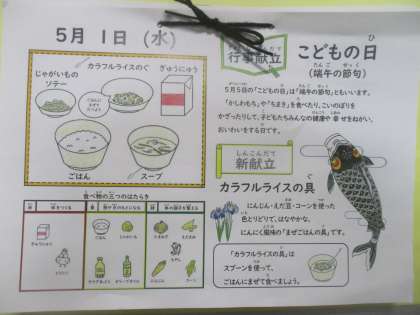 5月 1日 (水)
カラフルライスのぐ
ぎゅうにゅう
じゃがいもの
ソテー
ごはんに
まぜて
たべよう
ごはん
スープ
食べ物の三つのはたらき
ぎゅうにゅう
ごはん
じゃがいも
にんじん
えだまめ
もやし
コーン
ぎょうじこんだて
行事献立
こどもの日
(端午の節句)
5月5日の「こどもの日」は「端午の節句」ともいいます。
「かしわもち」や「ちまき」を食べたり、こいのぼりを
かざったりして、子どもたちみんなの健康や 幸せをねがい、
おいわいをする日です。
しんこんだて
新献立
カラフルライスの具
にんじん・えだ豆・コーンを使った
色とりどりで、はなやかな、
にんにく風味の「まぜごはんの具」です。
「カラフルライスの具」は
スプーンを使って、
ごはんにまぜて食べましょう。